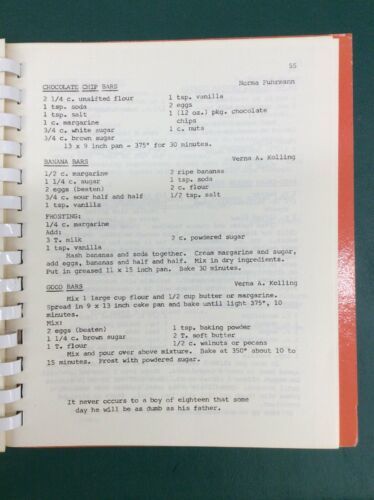 55
CHOCOLATE CHIP BARS Norma Fuhrmann
2 1/4 c. unsifted flour 1 tsp. vanilla
1 tsp. soda 2 eggs
1 tsp. salt 1 (12 oz.) pkg. chocolate
1 c. margarine chips
3/4 c. white sugar 1 c. nuts
3/4 c. brown sugar
13 x 9 inch pan - 375° for 30 minutes.
BANANA BARS Verna A. Kolling
1/2 c. margarine 2 ripe bananas
1 1/4 c. sugar 1 tsp. soda
2 eggs (beaten) 2 c. flour
3/4 c. sour half and half 1/2 tsp. salt
1 tsp. vanilla
FROSTING:
1/4 c. margarine
Add:
3 T. milk 2 c. powdered sugar
1 tsp. vanilla
Mash bananas and soda together. Cream margarine and sugar,
add eggs, bananas and half and half. Mix in dry ingredients.
Put in greased 11 x 15 inch pan. Bake 30 minutes.
GOOD BARS Verna A. Kolling
Mix 1 large cup flour and 1/2 cup butter or margarine.
Spread in 9 x 13 inch cake pan and bake until light 375°, 10
minutes.
Mix:
2 eggs (beaten) 1 tsp. baking powder
1 1/4 c. brown sugar 2 T. soft butter
1 T. flour 1/2 c. walnuts or pecans
Mix and pour over above mixture. Bake at 350° about 10 to
15 minutes. Frost with powdered sugar.
It never occurs to a boy of eighteen that some
day he will be as dumb as his father.